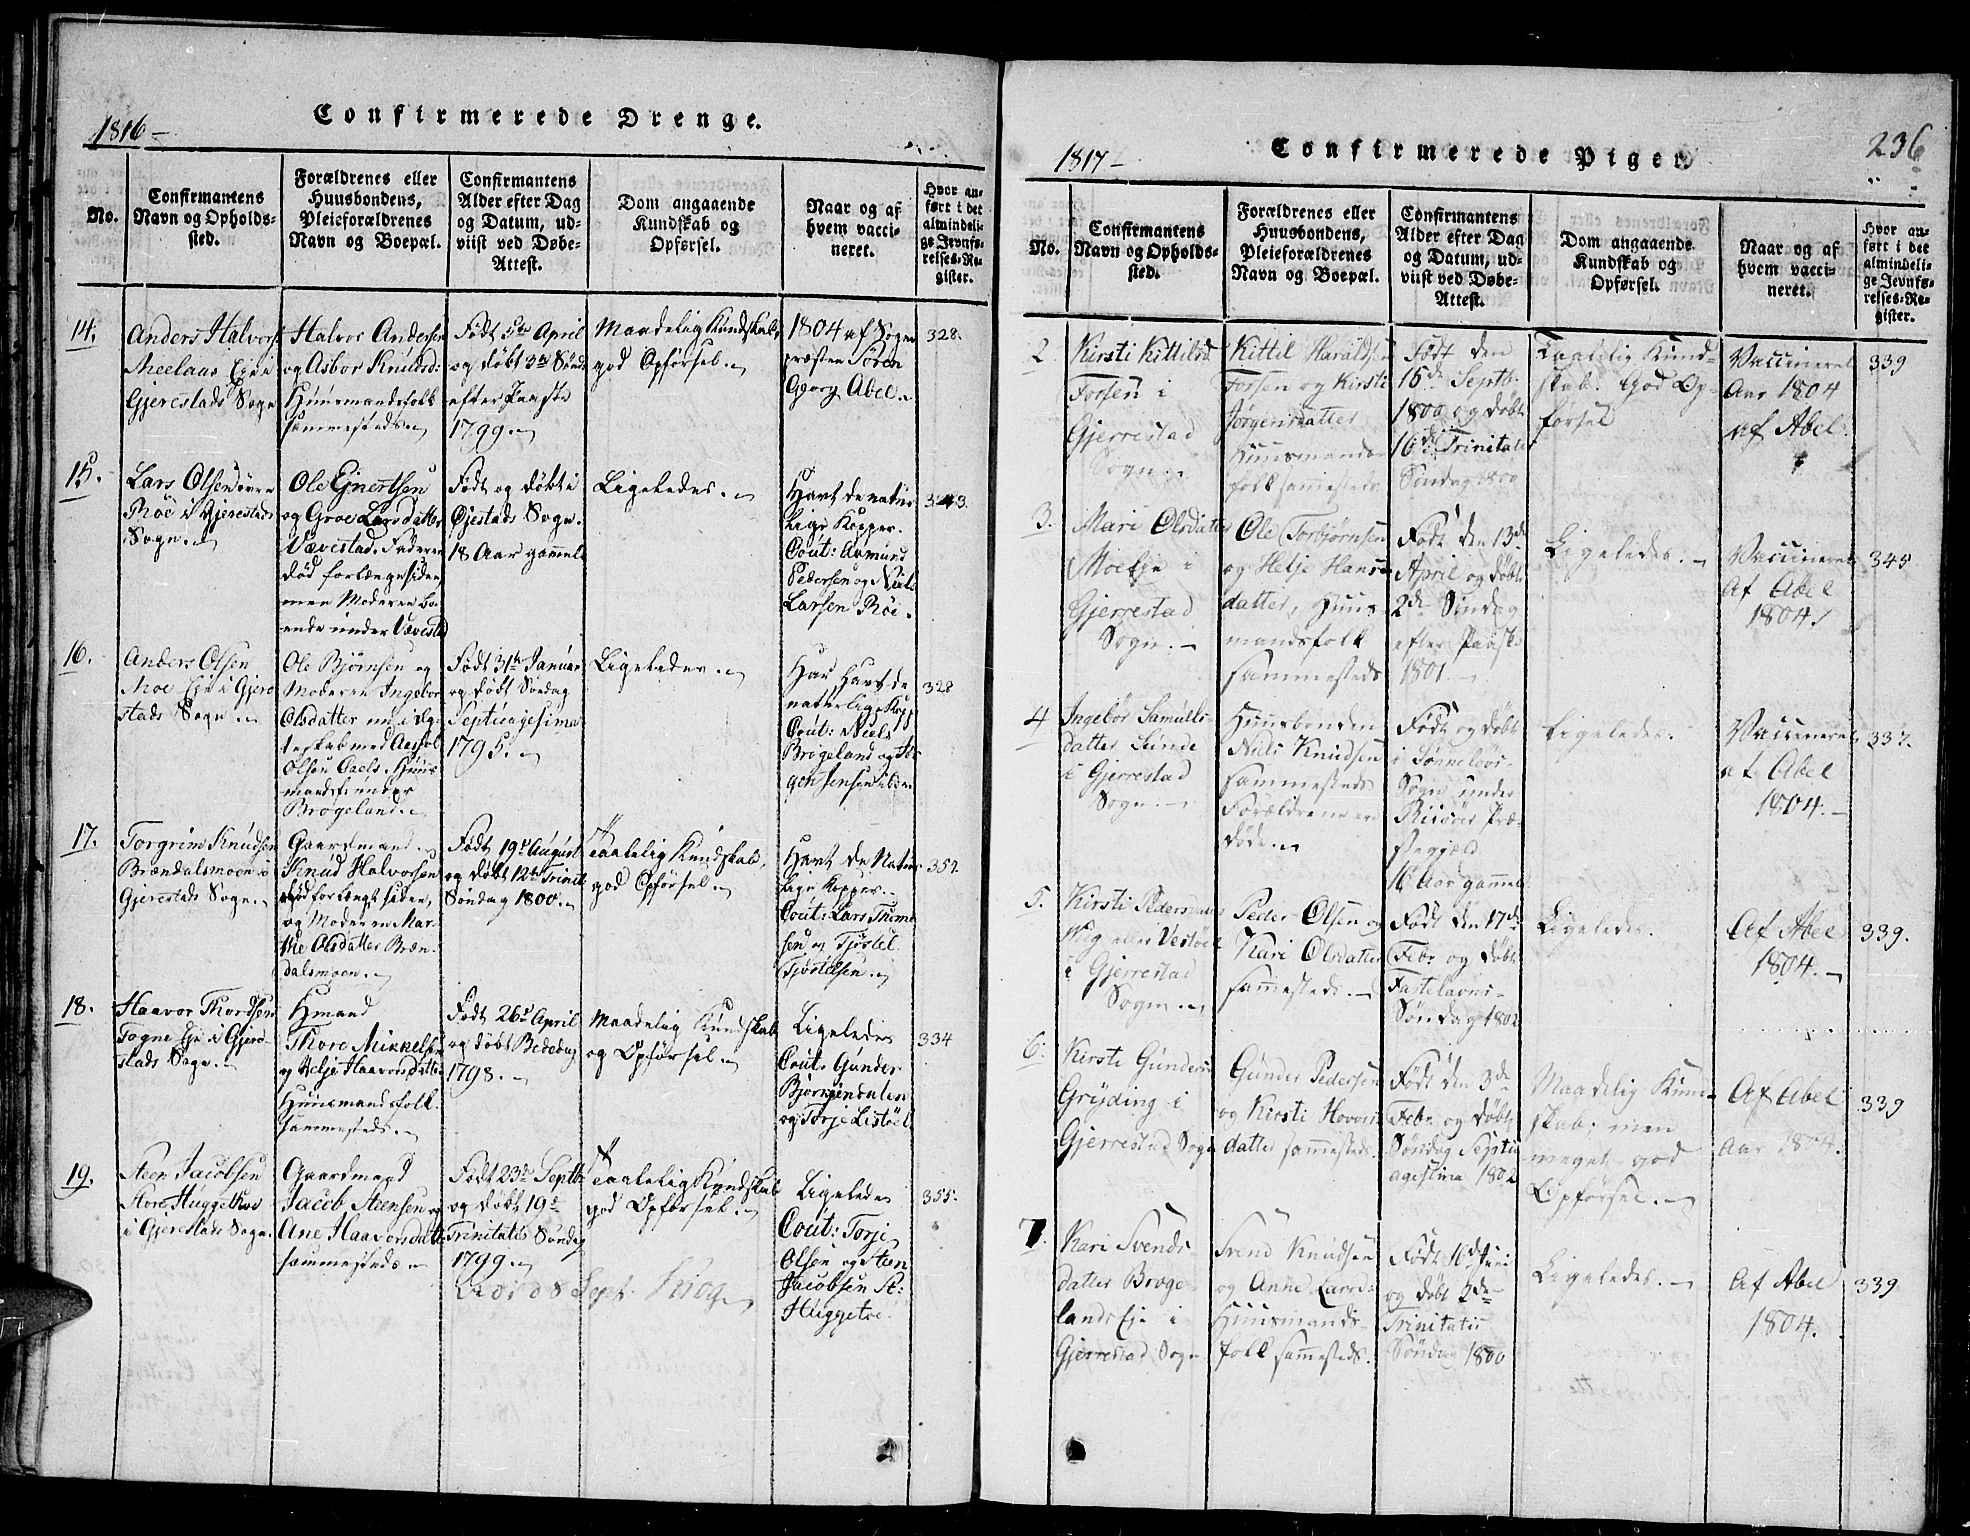 1816 –
Confirmerede Drenge.
No.
Confirmantens
Navn og Opholds-
sted.
Forældrenes eller
Huusbondens,
Pleieforældrenes
Navn og Boepæl.
Confirmantens
Alder efter Dag
og Datum, ud-
viist ved Døbe-
Attest.
Dom angaaende
Kundskab og
Opførsel.
Naar og af
hvem vacci-
neret.
Hvor an-
ført i det
almindeli-
ge Jevnfø-
relses-Re-
gister.
14.
Anders Halvors
Meelaas Eje i
Gjerestads Sogn
Halvor Andersen
og Asbor Knudsd:
Huusmandsfolk
sammesteds
Født 5te April
og døbt 3de Sønd
efter Paaske
1799.
Maadelig Kundskab,
god Opførsel.
1804 af Sogne
præsten Søren
Georg Abel.
328.
15.
Lars Olsen øvre
Røe i Gjerestads
Sogn.
Ole Ejnertsen
og Groe Larsdatter
Vævestad. Faderen
død for længe siden
men Moderen bo-
ende under Vævestad
Født og døbt i
Øjestads Sogn.
18 Aar gammel
Ligeledes.
Havt de natur
lige Kopper.
Cout: Aamund
Pedersen og Niels
Larsen Røe.
343.
16.
Anders Olsen
Moe Eje i Gjere
stads Sogn
Ole Bjørnsen og
Moderen Ingebor
Olsdatter nu i Æg-
teskab med Aasuld
Olsen Huus
mandsf: under
Brøgeland.
Født 31te Januar
og døbt Søndag
Septuagesima
1795.
Ligeledes.
Har havt de
naturlige Kopp
Cout: Niels
Brøgeland og Jør
gen Jensen ibd.
328
17.
Torgrim Knudsen
Brændalsmoen i
Gjerestads Sogn.
Gaardmand
Knud Halvorsen
død for længst siden,
og Moderen Mar-
the Olsdatter Bræn-
dalsmoen.
Født 19de August
og døbt 12te Trinit
Søndag 1800.
Taalelig Kundskab,
god Opførsel.
Havt de Natur
lige Kopper.
Cout: Lars Thom
sen og Tjøstel
Tjøstelsen.
357.
18.
Haavor Thordsen
Togne Eje i Gjere-
stads Sogn.
Hmand
Thore Mikkelsen
og Helje Haavorsdatter
Huusmandsfolk
sammesteds.
Født 26de April
og døbt Bededag
1798.
Maadelig Kundskab
og Opførsel.
Ligeledes
Cout: Gunder
Bjorvendalen
og Torje Listøel
334
19.
Steen Jacobsen
Store Huggetvei
i Gjerestads Sogn.
Gaardmand
Jacob Steensen og
Ane Haavorsdatt
sammesteds.
Født 23de Septb
og døbt 19de
Trinitatis Søndag
1799.
Taalelig Kundskab
god Opførsel.
Ligeledes
Cout: Torje
Olsen og Steen
Jacobsen St:
Huggetve.
355.
1817 –
Confirmerede Piger.
236
No.
Confirmantens
Navn og Opholds-
sted.
Forældrenes eller
Huusbondens,
Pleieforældrenes
Navn og Boepæl.
Confirmantens
Alder efter Dag
og Datum, ud-
viist ved Døbe-
Attest.
Dom angaaende
Kundskab og
Opførsel.
Naar og af
hvem vacci-
neret.
Hvor an-
ført i det
almindeli-
ge Jevnfø-
relses-Re-
gister.
2.
Kirsti Kittilsd
Torsen i
Gjerrestad
Sogn.
Kittil Haraldsen
Torsen og Kirsti
Jørgensdatter
Huusmands-
folk sammesteds
Født den
15de Septb.
1800 og døbt
16de Trinitatis
Søndag 1800
Taalelig Kund-
skab. God Op-
førsel
Vaccineret
Aar 1804
af Abel.
339
3.
Mari Olsdatter
Moe Eje i
Gjerrestad
Sogn. –
Ole Torbjørnsen
og Helje Hans-
datter, Huus-
mandsfolk
sammesteds
Født den 13de
April og døbt
2den Søndag
efter Paaske
1801. –
Ligeledes. –
Vaccineret
Af Abel
1804.
345
4
Ingebor Samuels-
datter Sunde
i Gjerrestad
Sogn. –
Huusbonden
Niels Knudsen
sammesteds
Forældrene ere
døde.
Født og døbt
i Sønneløvs
Sogn under
Riisøer Præ-
stegjeld.
16 Aar gammel
Ligeledes.
Vaccineret
af Abel
1804. –
337.
5.
Kirsti Pedersdatter
Wig eller Vestøel
i Gjerrestad
Sogn.
Peder Olsen og
Kari Olsdatter
sammesteds. –
Født den 17de
Febr. og døbt
Fastelavns-
Søndag 1802
Ligeledes.
Af Abel
1804. –
339.
6.
Kirsti Gunders
Gryding i
Gjerrestad Sogn
Gunder Pedersen
og Kirsti Hovors
datter sammesteds.
Født den 3de
Febr. og døbt
Søndag Septu
agesima 1802
Maadelig Kund-
skab; men
meget god
Opførsel.
Af Abel
Aar 1804.
339
7.
Kari Svends-
datter Brøge-
lands Eje i
Gjerrestad Sogn
Svend Knudsen
og Anne Larsd:
Huusmands-
folk sammesteds.
Født 16de Juni
og døbt 3de
Trinitatis
Søndag 1800
Ligeledes. –
Af Abel
1804.
339